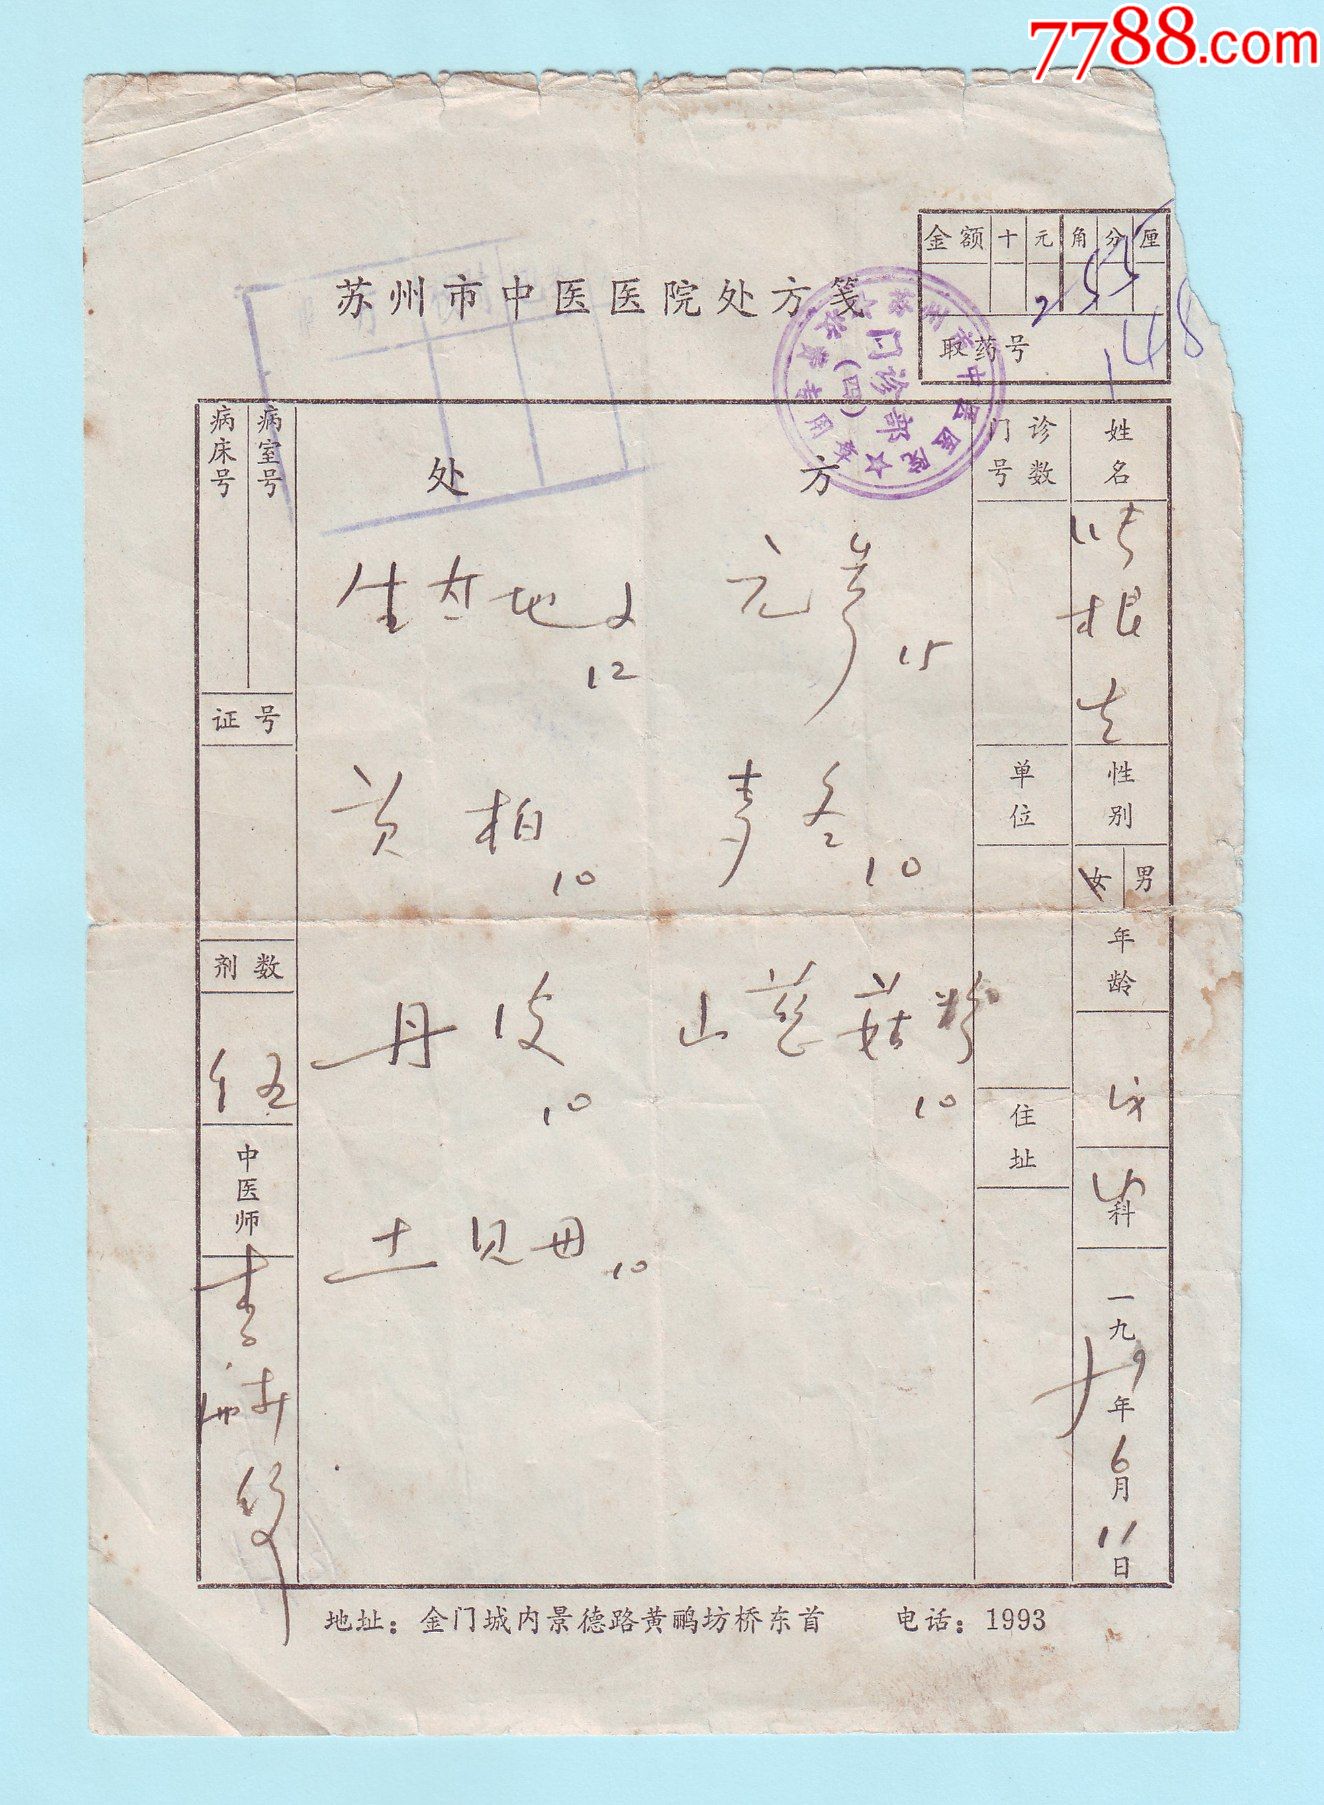 7788.com
金额 十 元 角 分 厘
2 5 5
取药号
148
苏州市中医医院处方笺
苏州市中医医院
门诊部
(四)
姓名
根
性别
女 男
年龄
科
一九79年6月11日
门诊号数
单位
住址
处方
元参 15
麦冬 10
黄柏 10
丹皮 10
山慈菇粉 10
土贝母 10
病室号
病床号
证号
剂数
伍
中医师
地址：金门城内景德路黄鹂坊桥东首 电话：1993